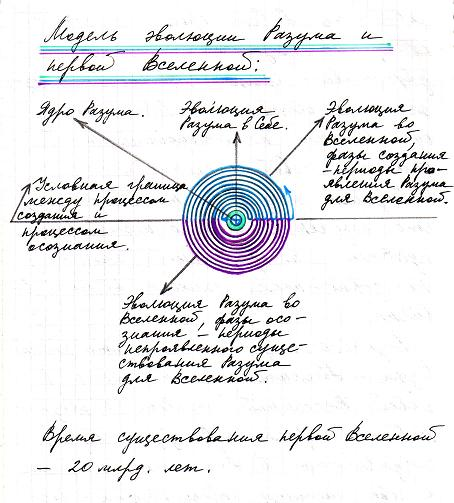 Модель эволюции Разума и
первой Вселенной:
Ядро Разума.
Эволюция
Разума в Себе.
Эволюция
Разума во
Вселенной,
фазы создания
– периоды про-
явления Разума
для Вселенной.
Условная граница
между процессом
создания и
процессом
осознания.
Эволюция Разума во
Вселенной, фазы осо-
знания – периоды
непроявленного суще-
ствования Разума
для Вселенной.
Время существования первой Вселенной
– 20 млрд. лет.